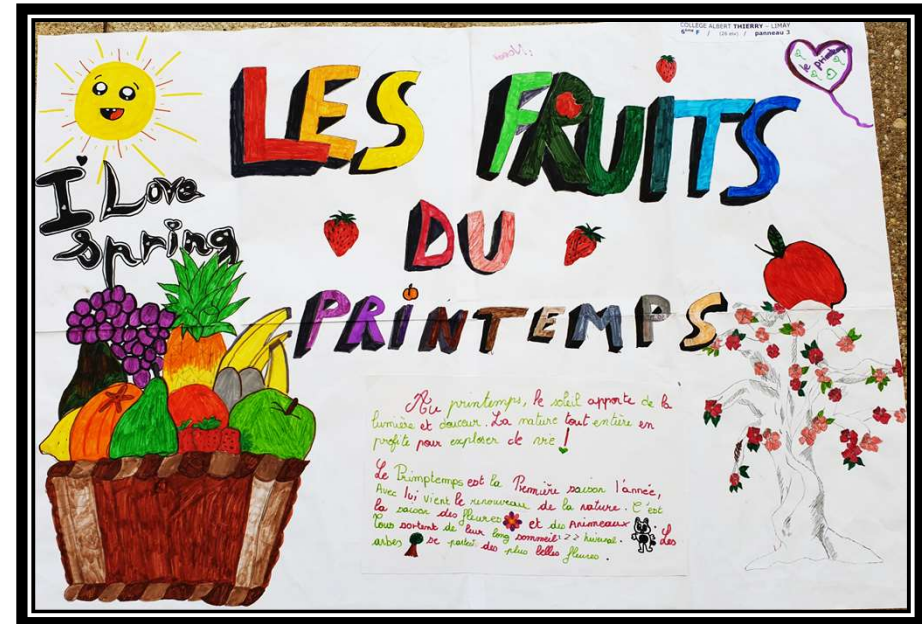 COLLEGE ALBERT THIERRY – LIMAY
6ème F / (26 élv) / panneau 3
le printemps
LES FRUITS
DU
PRINTEMPS
I Love
spring
Au printemps, le soleil apporte de la
lumière et douceur. La nature tout entière en
profite pour exploser de vie !
Le Primptemps est la Première saison l'année,
Avec lui vient le renouveau de la nature. C'est
la saison des fleures et des Animeaux. Les
tous sortent de leur long sommeil zz hivernal.
arbes se partent des plus belles fleures.